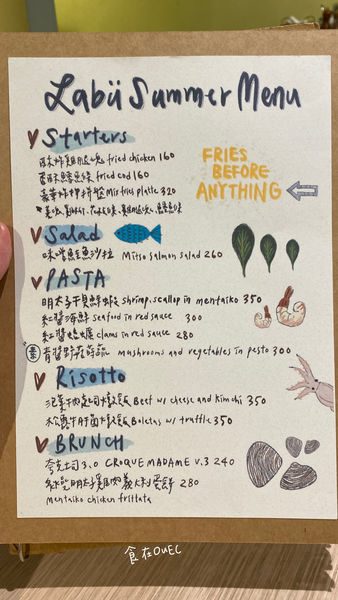 Labü Summer Menu
Starters
酥炸雞腿塊 fried chicken 160
香酥鱈魚條 fried cod 160
豪華炸物拼盤 Mis fries platte 320
FRIES
BEFORE
ANYTHING
Salad
味噌鮭魚沙拉 Mitso salmon salad 260
PASTA
明太子干貝鮮蝦 shrimp.scallop in mentaiko 350
紅醬海鮮 seafood in red sauce 300
紅醬蛤蠣 clams in red sauce 280
素 青醬野菇時蔬 mushrooms and vegetables in pesto 300
Risotto
泡菜牛肉起司燉飯 Beef w/ cheese and kimchi 350
松露牛肝菌燉飯 Boletus w/ truffle 350
BRUNCH
夸克土司 3.0 CROQUE MADAME V.3 240
明太子雞肉義大利蛋餅 280
mentaiko chicken frittata
食在OUEC